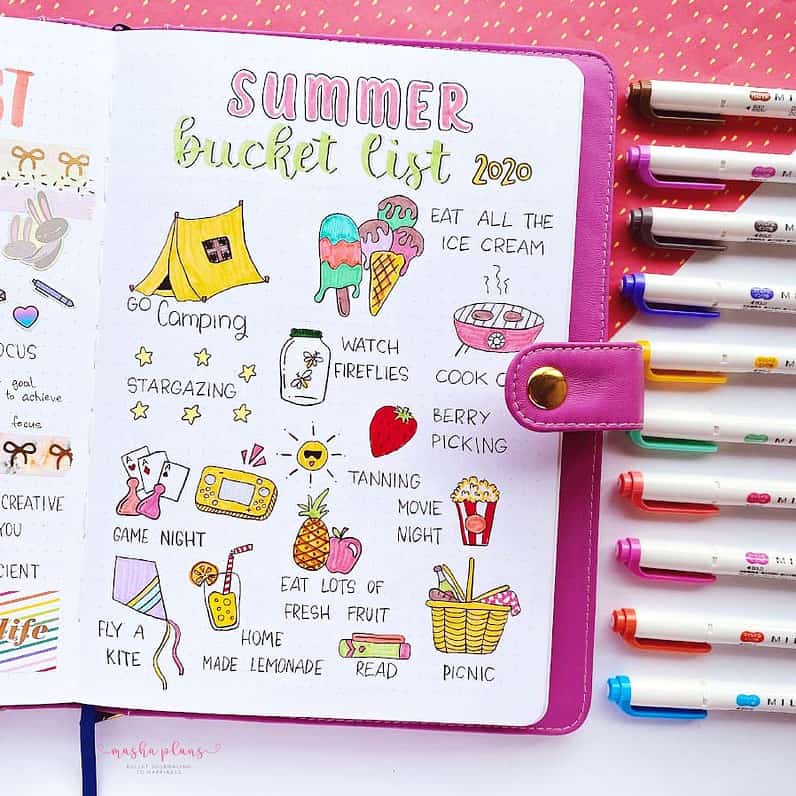 ST
OCUS
goal
to achieve
focus
CREATIVE
YOU
CIENT
life
SUMMER
bucket list 2020
EAT ALL THE
ICE CREAM
GO Camping
WATCH
FIREFLIES
COOK
STARGAZING
BERRY
PICKING
A A A
TANNING
MOVIE
NIGHT
GAME NIGHT
EAT LOTS OF
FRESH FRUIT
FLY A
KITE
HOME
MADE LEMONADE
READ
PICNIC
masha plans
BULLET JOURNALING
TO HAPPINESS